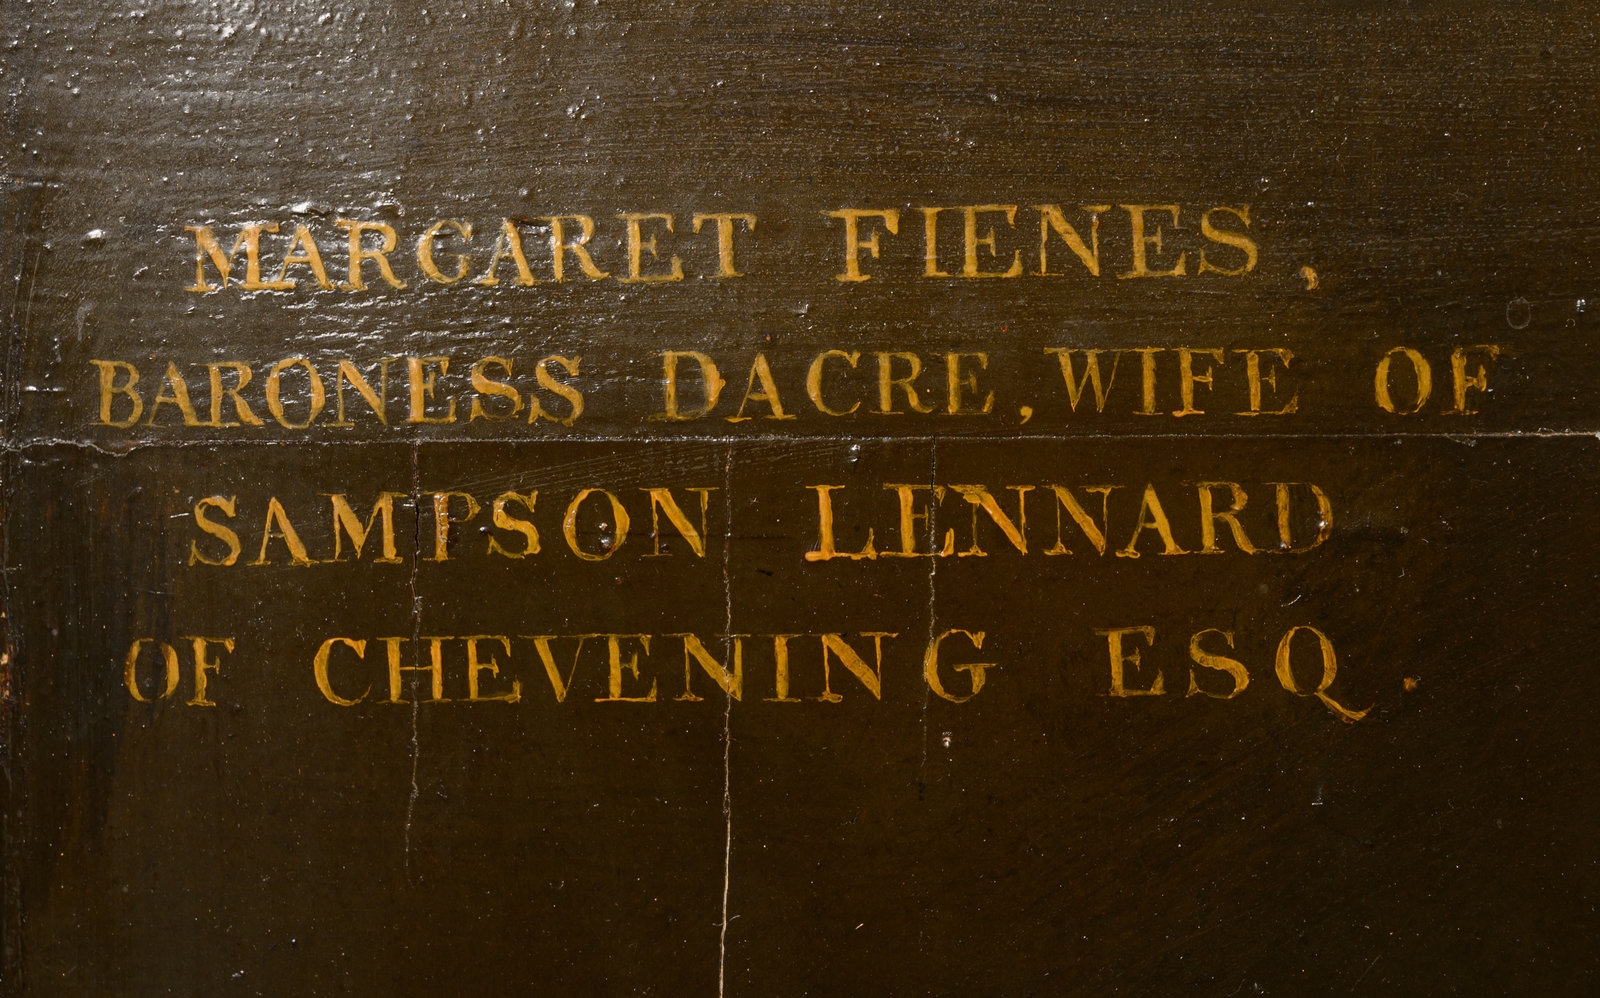 MARGARET FIENES,
BARONESS DACRE, WIFE OF
SAMPSON LENNARD
OF CHEVENING ESQ.